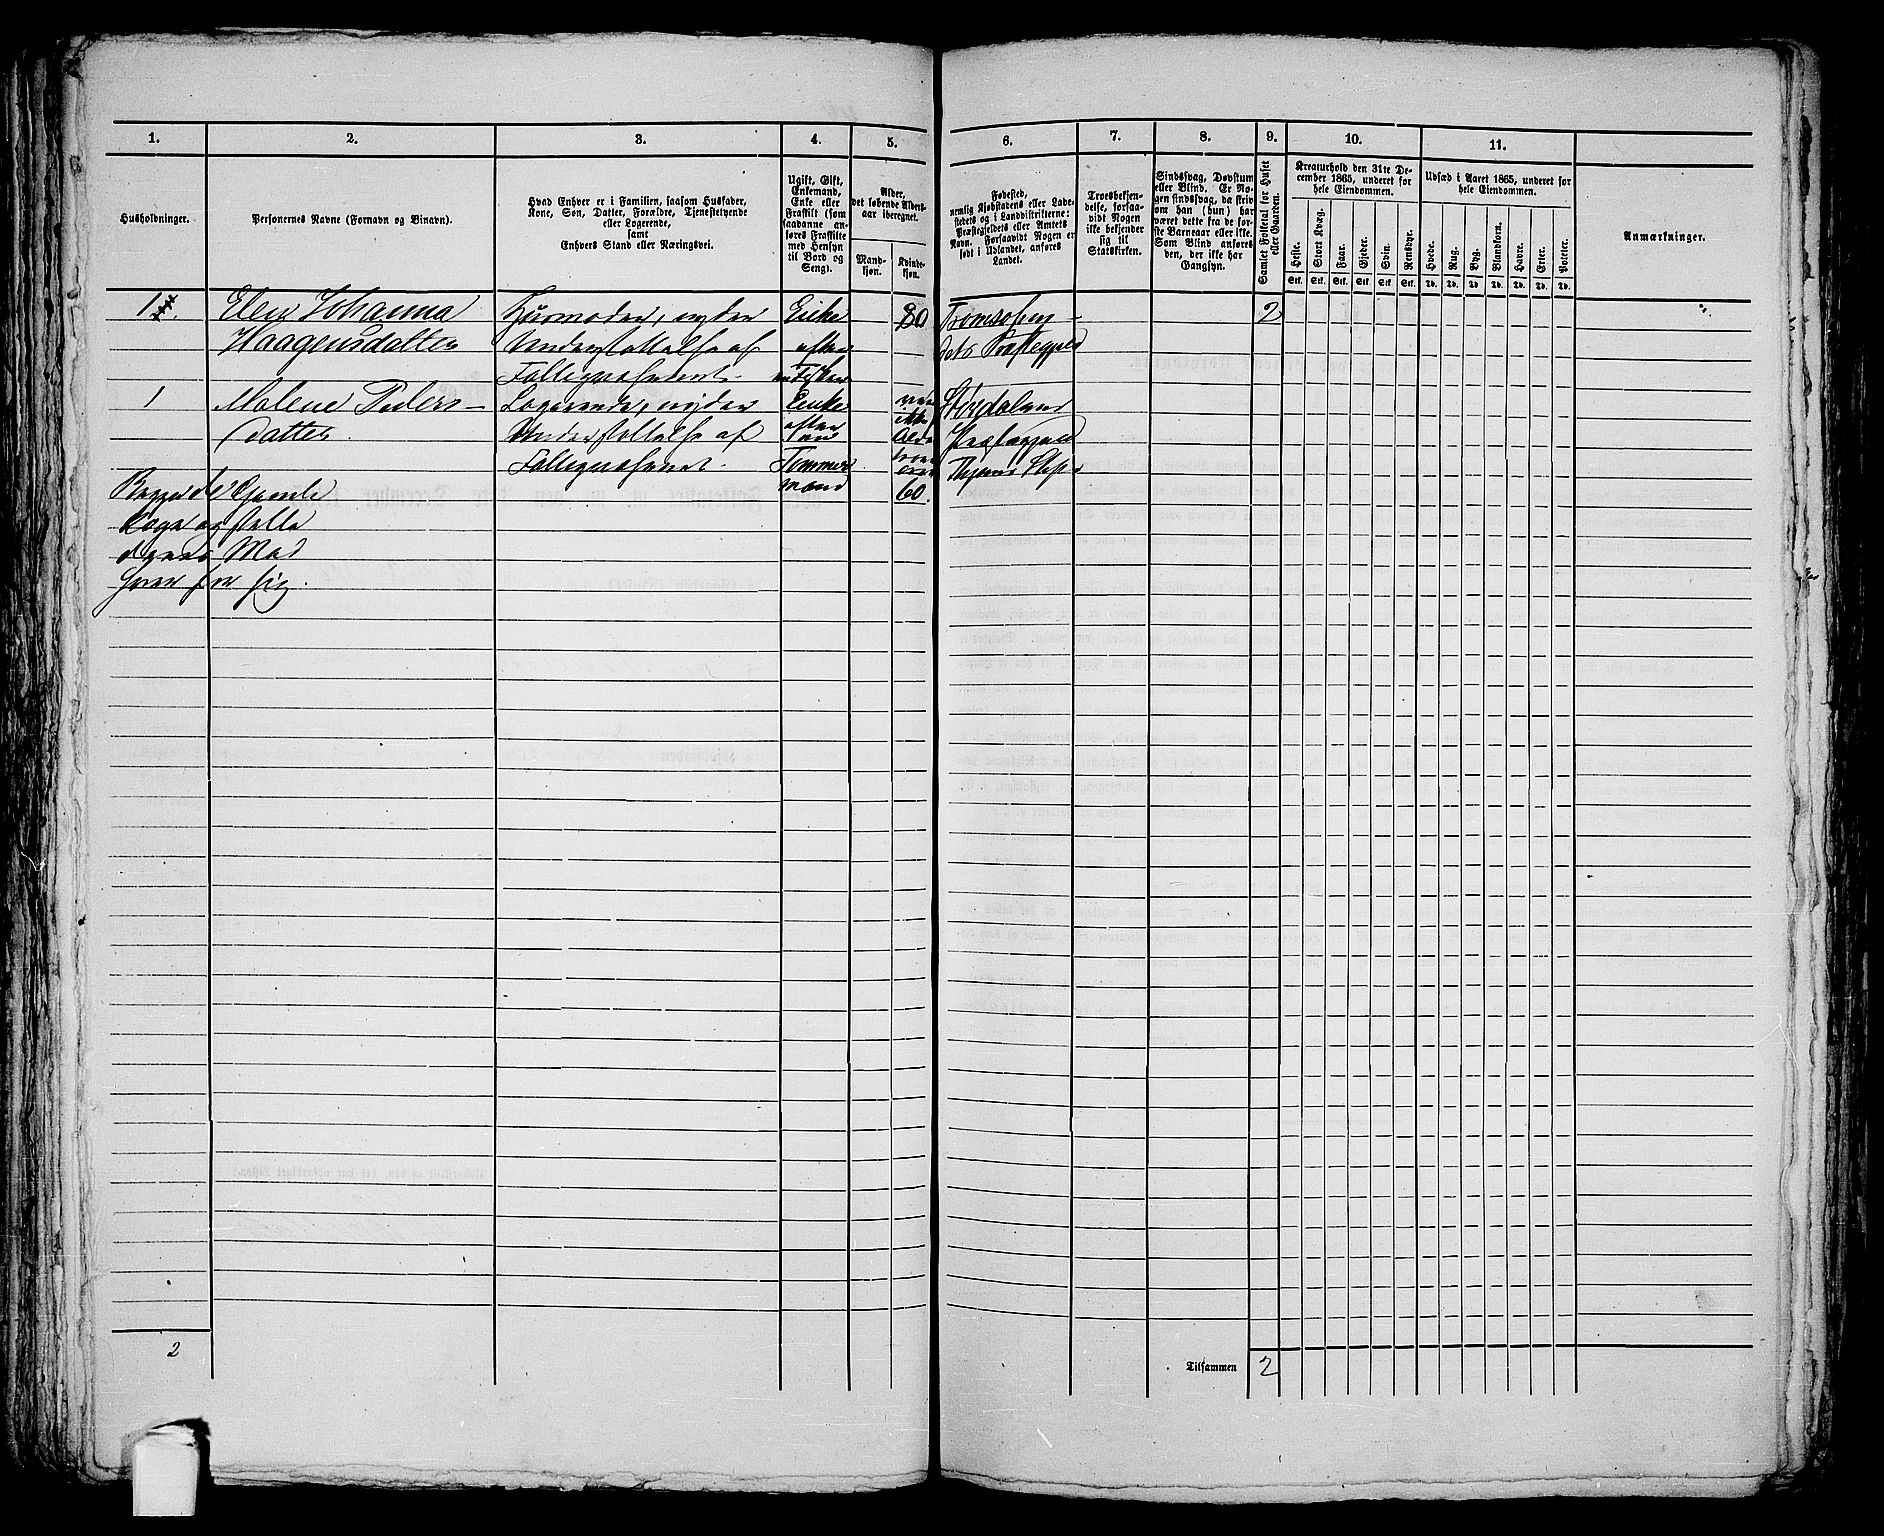 1.
2.
3.
4.
5.
6.
7.
8.
9.
10.
11.
Husholdninger.
Personernes Navne (Fornavn og Binavn).
Hvad Enhver er i Familien, saasom Husfader,
Kone, Søn, Datter, Forældre, Tjenestetyende
eller Logerende,
samt
Enhvers Stand eller Næringsvei.
Ugift, Gift,
Enkemand,
Enke eller
Fraskilt (som
saadanne an-
føres Fraskilte
med Hensyn
til Bord og
Seng).
Alder,
det løbende Alders-
aar iberegnet.
Mand-
kjøn.
Kvinde-
kjøn.
Fødested,
nemlig Kjøbstadens eller Lade-
stedets og i Landdistrikterne:
Præstegjeldets eller Amtets
Navn. Forsaavidt Nogen er
født i Udlandet, anføres
Landet.
Troesbekjen-
delse, forsaa-
vidt Nogen
ikke bekjender
sig til
Statskirken.
Sindssvag, Døvstum
eller Blind. Er No-
gen sindssvag, da skriv
om han (hun) har
været dette fra de før-
ste Barneaar eller ikke.
Som Blind anføres
den, der ikke har
Gangsyn.
Samlet Folketal for Huset
eller Gaarden.
Kreaturhold den 31te De-
cember 1865, underet for
hele Eiendommen.
Heste.
Stort Kvæg.
Faar.
Gjeder.
Svin.
Rensdyr.
Stk. Stk. Stk. Stk. Stk. Stk.
Udsæd i Aaret 1865, underet for
hele Eiendommen.
Hvede.
Rug.
Byg.
Blandkorn.
Havre.
Erter.
Poteter.
Td. Td. Td. Td. Td. Td. Td.
Anmærkninger.
1
Elen Johanna
Husmoder, nyder
Enke
80
Tromsøsun-
2
Haagensdatter
Understøttelse af
efter
dets Præstegjeld
Fattigvæsenet.
en Fisker
1
Malene Peders-
Logerende, nyder
Enke
Størdalens
datter
Understøttelse af
efter
en
ikke
Præstegjeld
Fattigvæsenet.
Tømmer
mand
60.
Begge de Gamle
koge og stelle
deres Mad
hver for sig.
2
Tilsammen
2